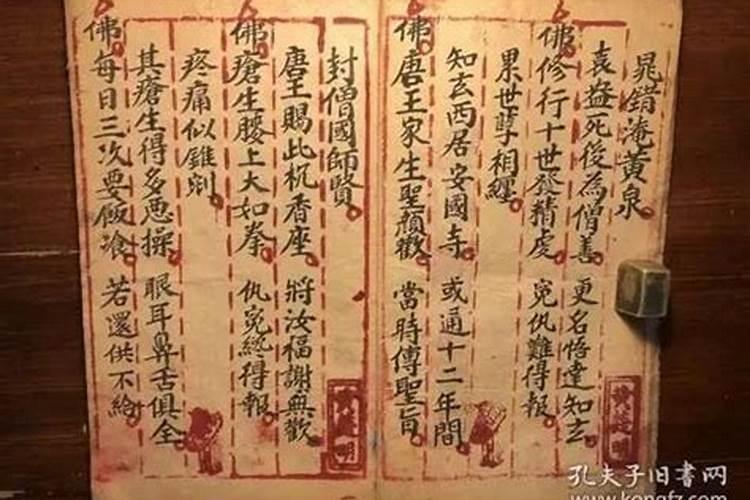 晁錯淹黄泉
袁盎死後為僧善 更名悟達知玄
佛修行十世發精虔 寃仇難得報
累世孽相纏
知玄西居安國寺 或通十二年間
佛唐王家生聖顏歡 當時傳聖旨
封僧國師賢
唐王賜此杌香座 將汝福謝無歡
佛瘡生腰上大如拳 仇寃終得報
疼痛似錐剜
其瘡生得多悪操 眼耳鼻舌俱全
佛每日三次要飯飡 若還供不給
孔夫子旧书网